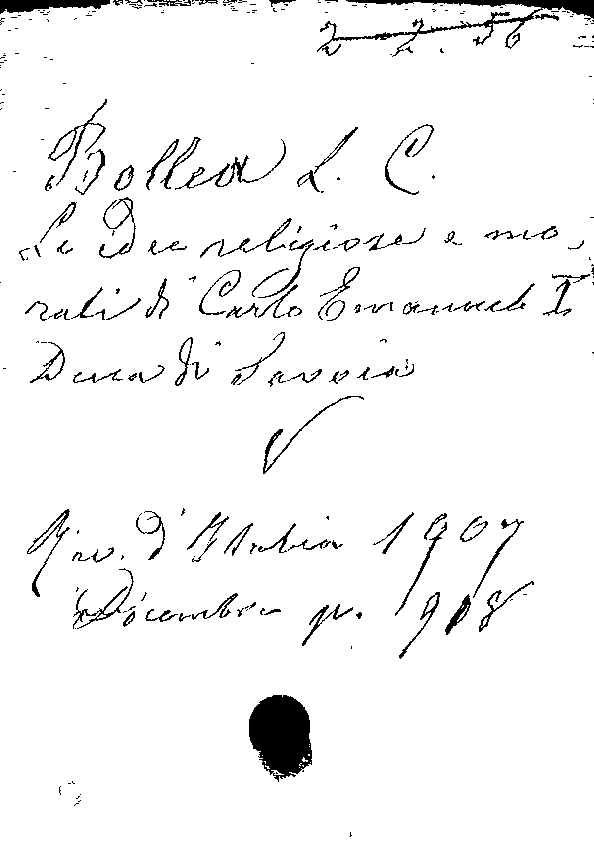 2 2.56
Bollea L. C.
Le Idee religiose e mo-
rali di Carlo Emanuele I
Duca di Savoia
Riv. d'Italia 1907
Décembre p. 908